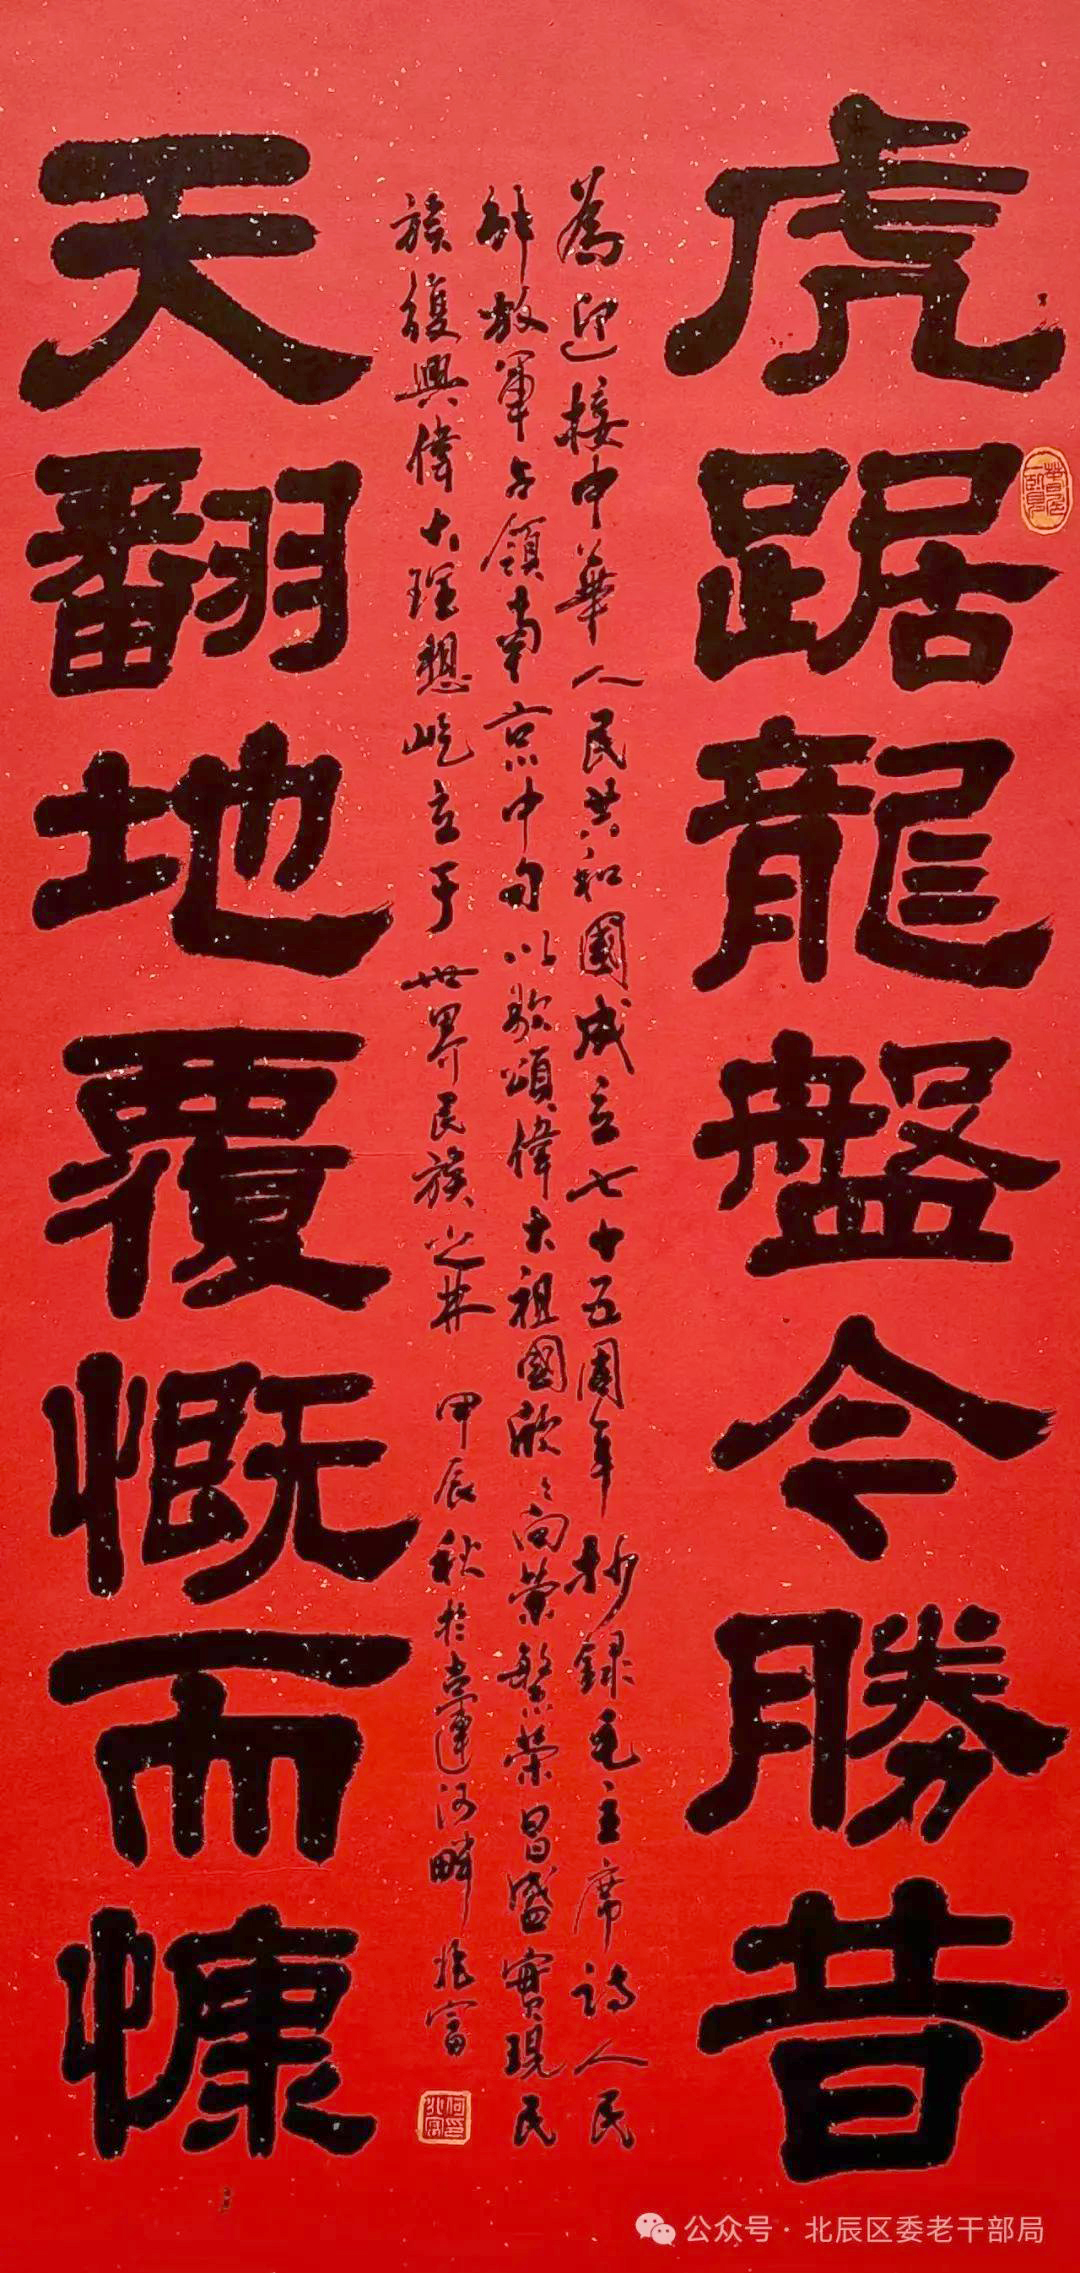 虎踞龍盤今勝昔
為迎接中華人民共和國成立七十五周年抄録毛主席詩人民
解放軍占領南京中句以歌頌偉大祖國欣〻向榮繁榮昌盛實現民
族復興偉大理想屹立于世界民族之林 甲辰秋於古運河畔 兆富
天翻地覆慨而慷
公众号·北辰区委老干部局